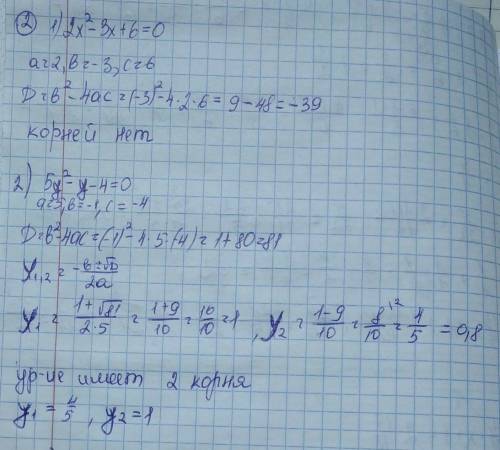 ② 1) 2x² - 3x + 6 = 0
a=2, b=-3, c=6
D=b² - 4ac = (-3)² - 4·2·6 = 9 - 48 = -39
корней нет
2) 5y² - y - 4 = 0
a=5, b=-1, c=-4
D=b²-4ac=(-1)² - 4·5·(-4) = 1+80=81
y₁,₂ = -b±√D / 2a
y₁ = 1+√81 / 2·5 = 1+9 / 10 = 10/10 = 1, y₂ = 1-9 / 10 = 8/10 \² = 4/5 = 0,8
ур-ие имеет 2 корня
y₁ = 4/5, y₂ = 1